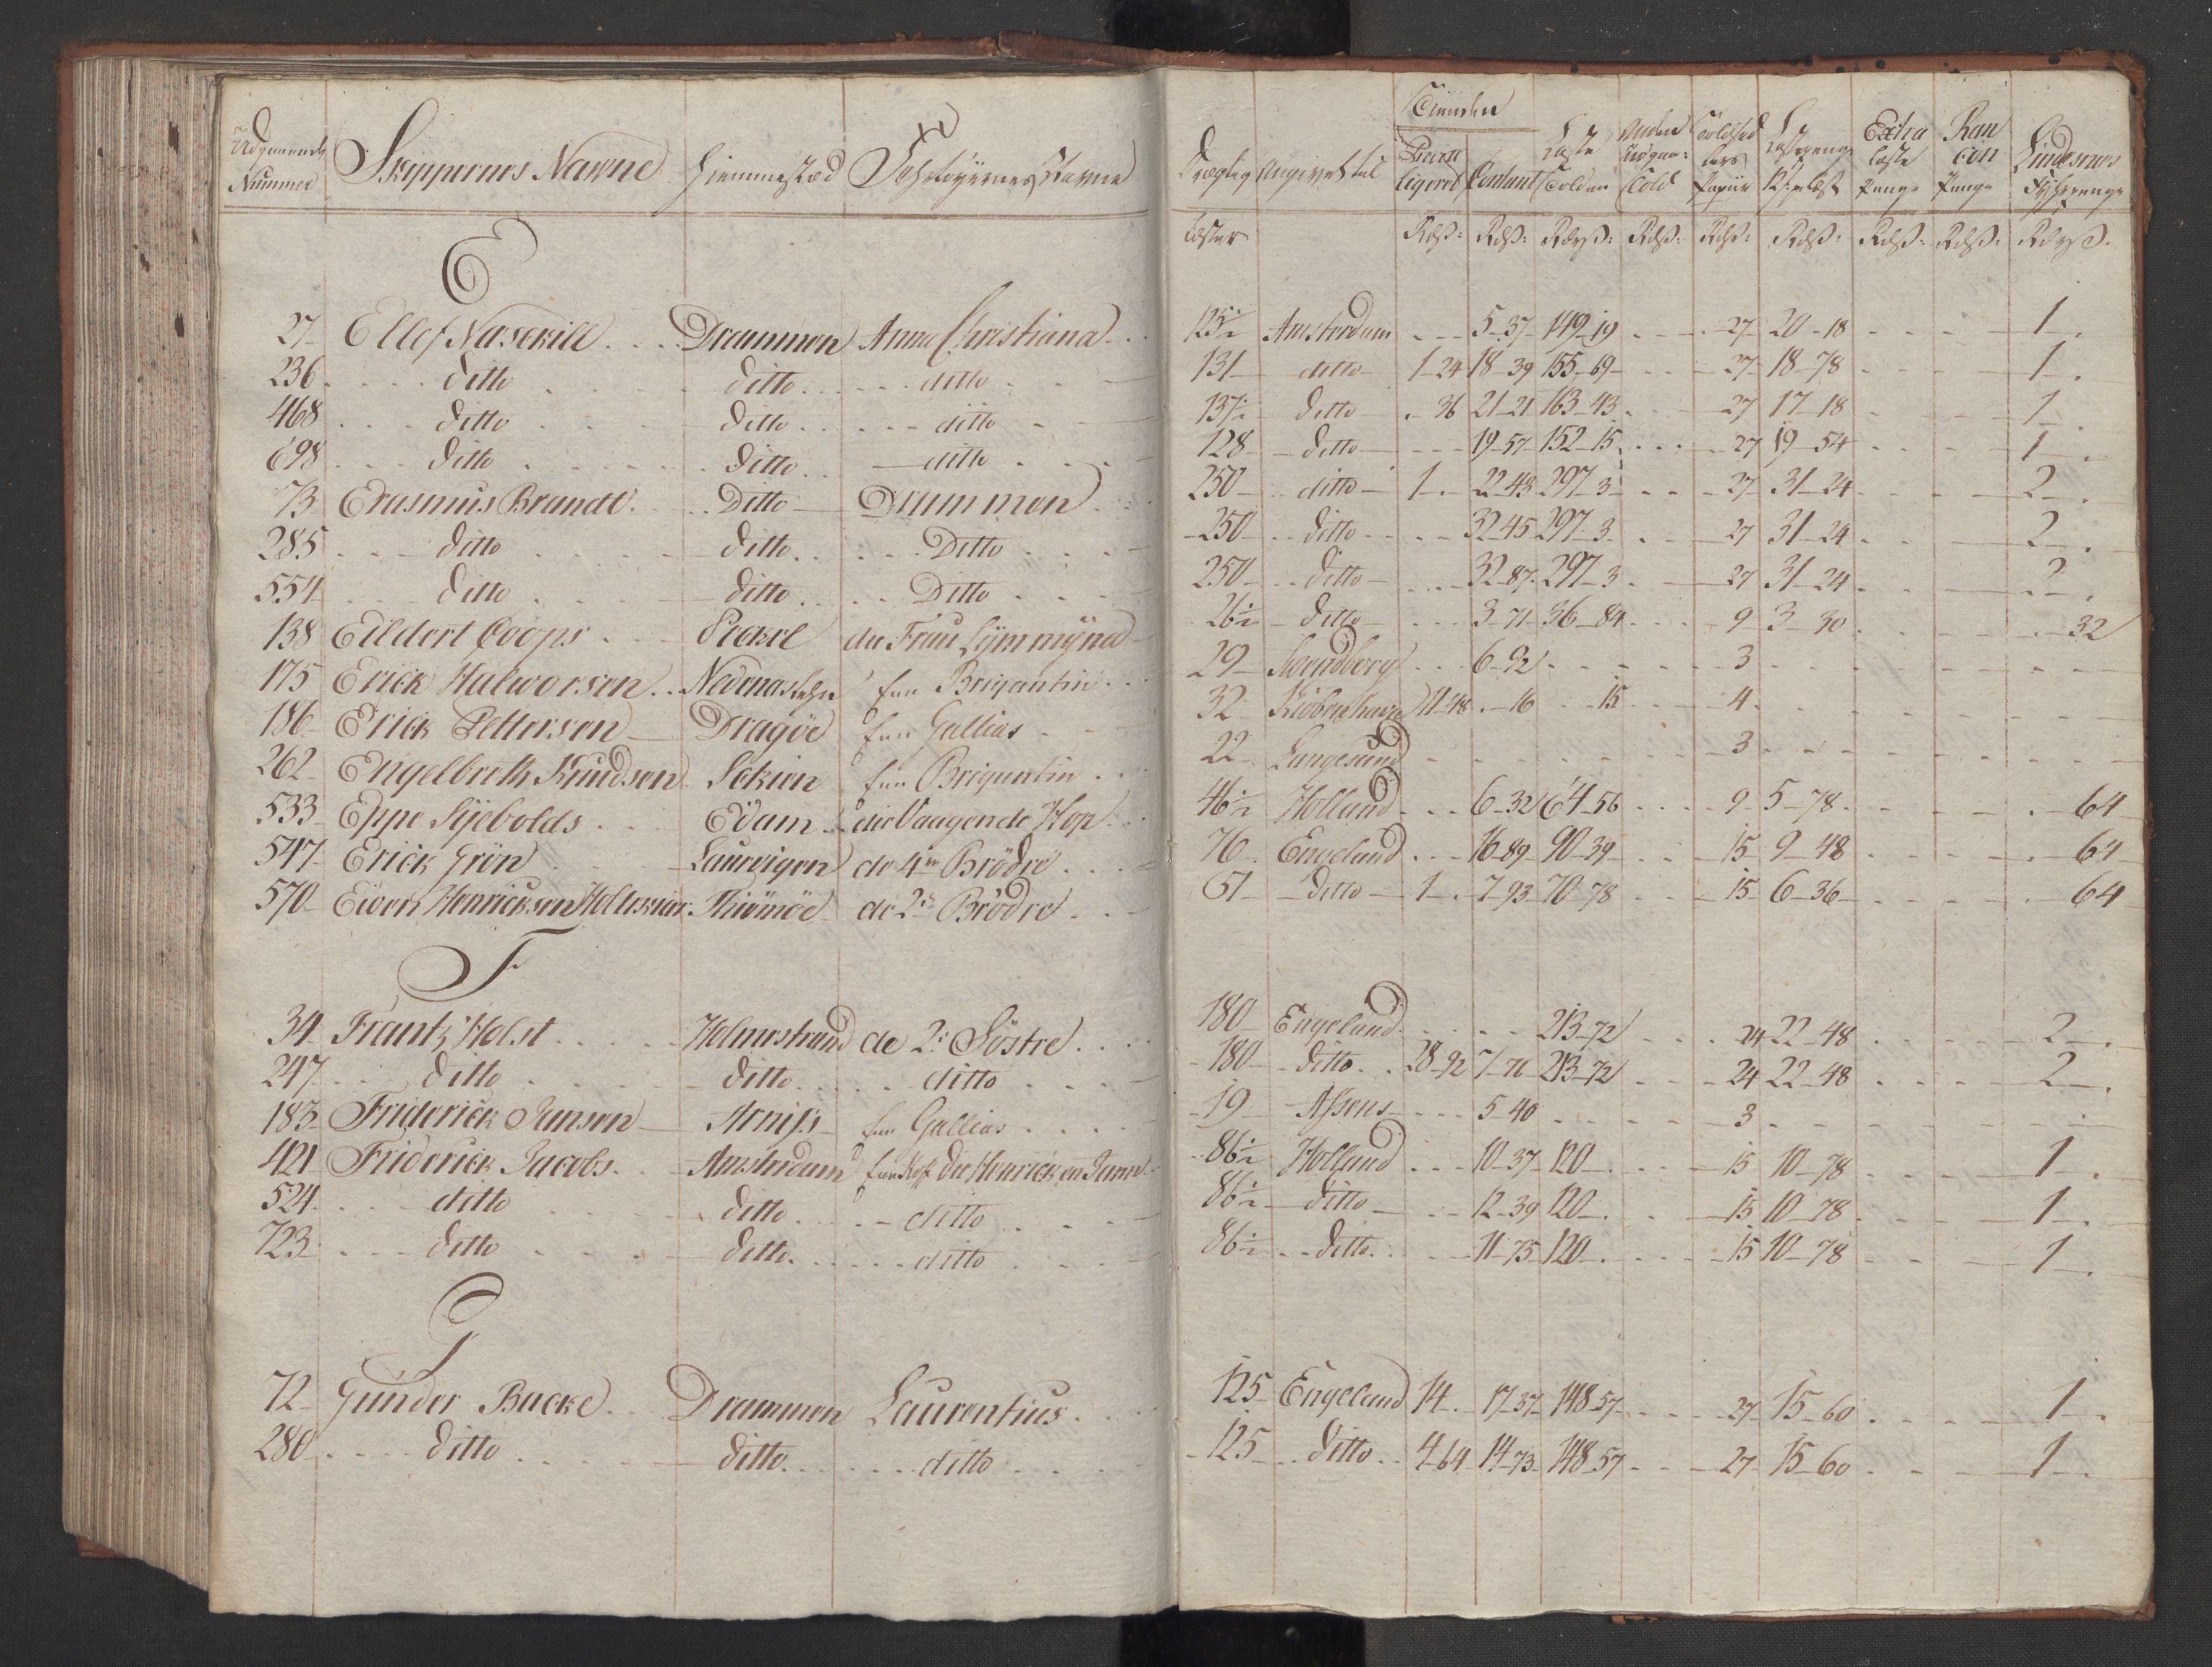 Udgaaende Nummer | Skippernes Navne | Hjemmestæd | Fahrtøyernes Navne | Drægtig Læster | Angivet til | Tienden | Contant | Læste Tolden | Anden Udgaa: Told | Toldsed lers Papiir | Extra læste Penge | Ran con Penge | Lindesnes Fyhrpenge
E
27 Ellef Naserill Drammen Anna Christiana 125½ Amsterdam 5-37 149-19 27 20-18 1
236 ditto ditto ditto 131 ditto 1-24 18-39 155-69 27 18-78 1
468 ditto ditto ditto 137½ ditto 36 21-21 163-43 27 17-18 1
698 ditto ditto ditto 128 ditto 19-57 152-15 27 19-54 1
73 Erasmus Brandt Ditto Drammen 250 ditto 1 22-43 297-3 27 31-24 2
285 ditto ditto Ditto 250 ditto 32-45 297-3 27 31-24 2
554 ditto ditto Ditto 250 ditto 32-87 297-3 27 31-24 2
138 Eildert Coops Peckel 26½ ditto 3-71 36-84 9 3-30 32
175 Erick Halworsen een Brigantin 29 Svendborg 6-92 3
186 Erick Pettersen Dragöe een Gallias 32 Kiöbenhavn 11-48 16 15 4
262 Engelbreth Knudsen Schien een Brigantin 22 Langesund 3
533 Eppe Sijebolds Edam 46½ Holland 6-32 64-56 9 5-78 64
547 Erick Grön Laurvigen de 4re Brödre 76 Engeland 16-89 90-39 15 9-48 64
570 Eiven Henricksen de 2de Brödre 61 ditto 1 7-93 70-78 15 6-36 64
F
34 Frantz Holst Holmestrand de 2de Söstre 180 Engeland 213-72 24 22-48 2
247 ditto ditto ditto 180 ditto 28-92 7-71 213-72 24 22-48 2
183 Friderick Jensen Arniss een Gallias 19 Assens 5-40 3
421 Friderick Jacobs Amsterdam een Koff die Henrick en Jann 86½ Holland 10-37 120 15 10-78 1
524 ditto ditto ditto 86½ ditto 12-39 120 15 10-78 1
723 ditto ditto ditto 86½ ditto 11-75 120 15 10-78 1
G
72 Gunder Backe Drammen Laurentius 125 Engeland 14 17-37 148-57 27 15-60 1
280 ditto ditto ditto 125 ditto 4-64 14-73 148-57 27 15-60 1